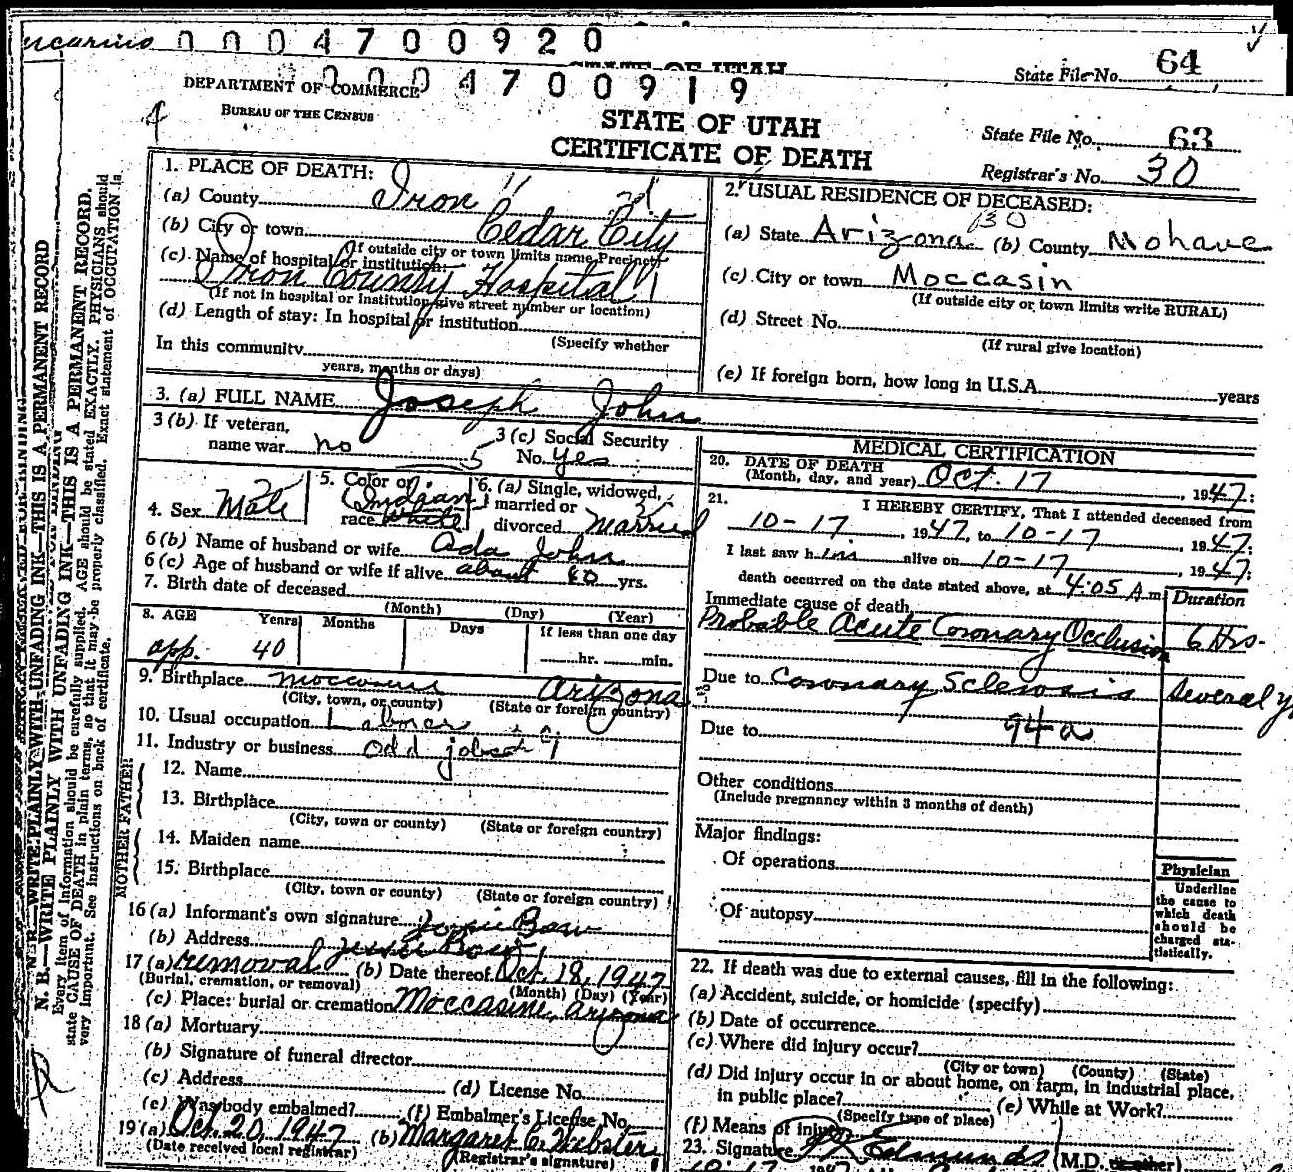 0004700920
STATE OF UTAH
State File No. 64
DEPARTMENT OF COMMERCE 0004700919
BUREAU OF THE CENSUS
STATE OF UTAH
CERTIFICATE OF DEATH
State File No. 63
Registrar's No. 30
1. PLACE OF DEATH:
(a) County Iron
(b) City or town Cedar City
(If outside city or town limits name Precinct)
(c) Name of hospital or institution:
Iron County Hospital
(If not in hospital or institution give street number or location)
(d) Length of stay: In hospital or institution
(Specify whether
In this community
years, months or days)
2. USUAL RESIDENCE OF DECEASED:
(a) State Arizona (b) County Mohave
(c) City or town Moccasin
(If outside city or town limits write RURAL)
(d) Street No.
(If rural give location)
(e) If foreign born, how long in U.S.A. years
3. (a) FULL NAME Joseph John
3 (b) If veteran,
name war no
3 (c) Social Security
No. yes
4. Sex Male
5. Color or
race Indian white
6. (a) Single, widowed,
married or
divorced married
6 (b) Name of husband or wife Ada John
6 (c) Age of husband or wife if alive about 40 yrs.
7. Birth date of deceased
(Month) (Day) (Year)
8. AGE Years Months Days If less than one day
app. 40 hr. min.
9. Birthplace Arizona
(City, town, or county) (State or foreign country)
10. Usual occupation Laborer
11. Industry or business Odd jobs
FATHER
12. Name
13. Birthplace
(City, town or county) (State or foreign country)
MOTHER
14. Maiden name
15. Birthplace
(City, town or county) (State or foreign country)
16 (a) Informant's own signature
(b) Address
17 (a) removal (b) Date thereof Oct. 18, 1947
(Burial, cremation, or removal) (Month) (Day) (Year)
(c) Place: burial or cremation Moccasine, Arizona
18 (a) Mortuary
(b) Signature of funeral director
(c) Address (d) License No.
(e) Was body embalmed? (f) Embalmer's License No.
19 (a) Oct. 20, 1947 (b) Margaret C. Webster
(Date received local registrar) (Registrar's signature)
MEDICAL CERTIFICATION
20. DATE OF DEATH
(Month, day, and year) Oct. 17, 1947:
21. I HEREBY CERTIFY, That I attended deceased from
10-17, 1947, to 10-17, 1947:
I last saw him alive on 10-17, 1947:
death occurred on the date stated above, at 4:05 A m.
Duration
Immediate cause of death
Probable Acute Coronary Occlusion 6 Hrs.
Due to Coronary Sclerosis Several
94a
Due to
Other conditions
(Include pregnancy within 3 months of death)
Major findings:
Of operations
Of autopsy
Physician
Underline
the cause to
which death
should be
charged sta-
tistically.
22. If death was due to external causes, fill in the following:
(a) Accident, suicide, or homicide (specify)
(b) Date of occurrence
(c) Where did injury occur?
(City or town) (County) (State)
(d) Did injury occur in or about home, on farm, in industrial place,
in public place? (e) While at Work?
(Specify type of place)
(f) Means of injury
23. Signature Edmunds (M.D. or other)
N. B.—WRITE PLAINLY WITH UNFADING INK—THIS IS A PERMANENT RECORD.
Every item of information should be carefully supplied. AGE should be stated EXACTLY. PHYSICIANS should
state CAUSE OF DEATH in plain terms, so that it may be properly classified. Exact statement of OCCUPATION is
very important. See instructions on back of certificate.